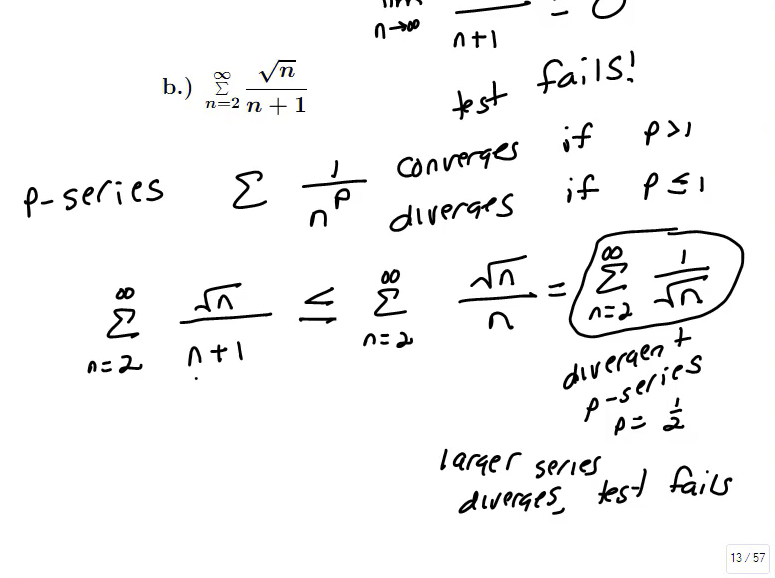 lim n→∞ /n+1 = 0
test fails!
b.) ∞Σn=2 √n/n + 1
p-series Σ 1/n^p converges if p>1
diverges if p≤1
∞Σn=2 √n/n+1 ≤ ∞Σn=2 √n/n = ∞Σn=2 1/√n
divergent
p-series
p= 1/2
larger series
diverges, test fails
13 / 57